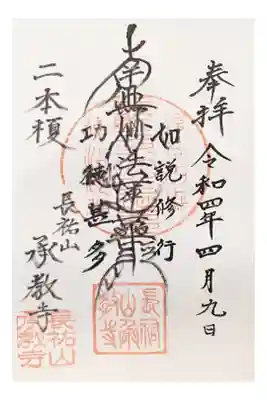 奉拝 令和四年四月九日
如説修行
南無妙法蓮華経
功徳甚多
二本榎
長祐山
承教寺
長祐山承教寺
長祐山承教寺